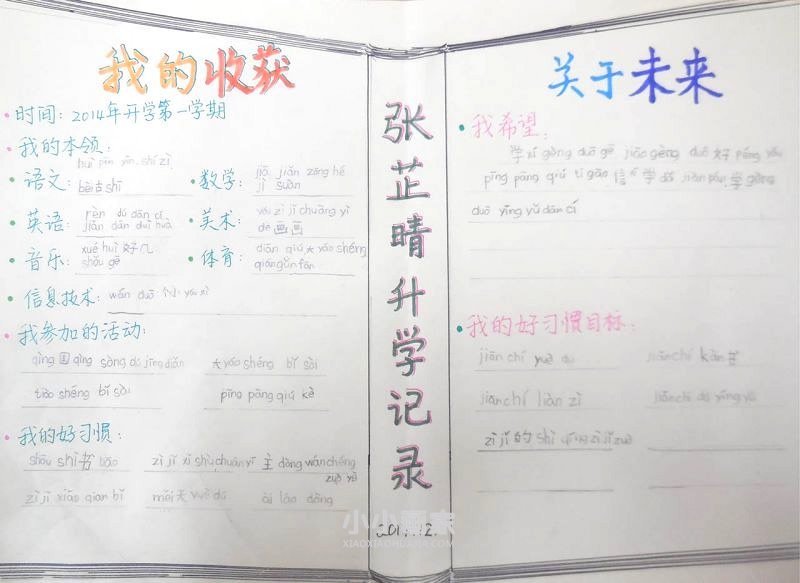 我的收获
时间：2014年开学第一学期
我的本领：
语文：huì pīn yīn. shí zì
bèi古shī
数学：jiā jiǎn zōng hé
jì suàn
英语：rèn dú dān cí
jiǎn dān duì huà
美术：yòu zì jǐ chuàng yì
de画画
音乐：xué huì 好几
shǒu gē
体育：diān qiú 大yáo shéng
qián gǔn fān
信息技术：wán duō 个小yóu xì
我参加的活动：
qìng 国qìng sòng dú jīng diǎn
大yáo shéng bǐ sài
tiào shéng bǐ sài
pīng pāng qiú kè
我的好习惯：
shōu shí书bāo
zì jǐ xǐ shù chuān yī
主dòng wán chéng
zuò yè
zì jǐ xiāo qiān bǐ
měi天yuè dú
ài láo dòng
张芷晴升学记录
关于未来
我希望：
学xí gèng duō gē jiāo gèng duō 好péng yǒu
pīng pāng qiú tí gāo
学gèng
duō yīng yǔ dān cí
我的好习惯目标：
jiān chí yuè dú
jiān chí kàn书
jiān chí liàn zì
jiān chí dú yīng yǔ
zì jǐ的shì qíng zì jǐ zuò
小小画家
XIAOXIAOHUAJIA.COM